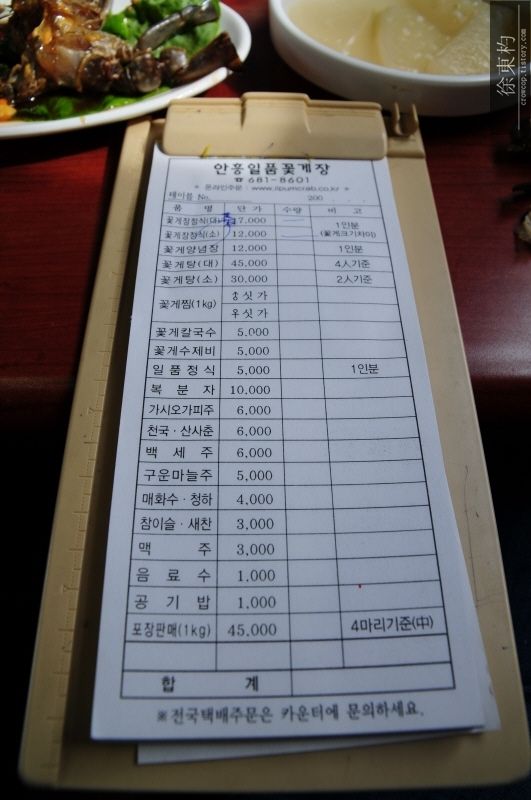 徐東杓
crowcop.tistory.com
안흥일품꽃게장
☎ 681-8601
* 온라인주문 : www.ilpumcrab.co.kr *
테이블 No. 200 . . .
품 명 단 가 수량 비 고
꽃게장정식(대) 17,000 1인분
꽃게장정식(소) 12,000 (꽃게크기차이)
꽃게양념장 12,000 1인분
꽃게탕(대) 45,000 4인기준
꽃게탕(소) 30,000 2인기준
꽃게찜(1kg) 숭싯가
우싯가
꽃게칼국수 5,000
꽃게수제비 5,000
일품정식 5,000 1인분
복분자 10,000
가시오가피주 6,000
천국·산사춘 6,000
백세주 6,000
구운마늘주 5,000
매화수·청하 4,000
참이슬·새찬 3,000
맥주 3,000
음료수 1,000
공기밥 1,000
포장판매(1kg) 45,000 4마리기준(中)
합 계
※전국택배주문은 카운터에 문의하세요.